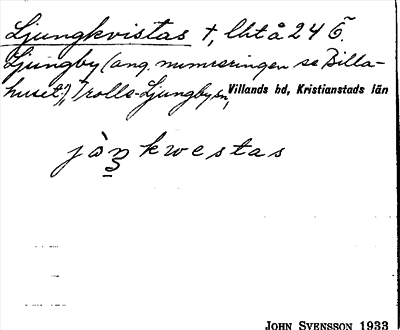 Ljungkvistas †, lht å 24 Ö.
Ljungby (ang. numreringen se Billa-
huset), Trolle-Ljungby sn, Villands hd, Kristianstads län
jòn̠kwestas
JOHN SVENSSON 1933